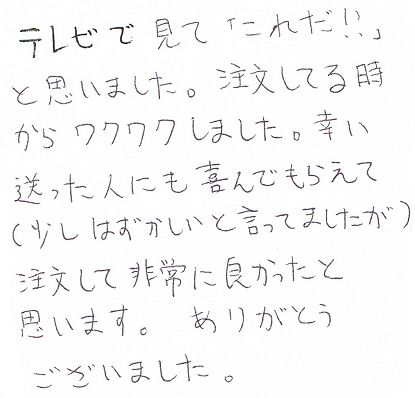 テレビで見て「これだ!!」
と思いました。注文してる時
からワクワクしました。幸い
送った人にも喜んでもらえて
(少しはずかしいと言ってましたが)
注文して非常に良かったと
思います。ありがとう
ございました。